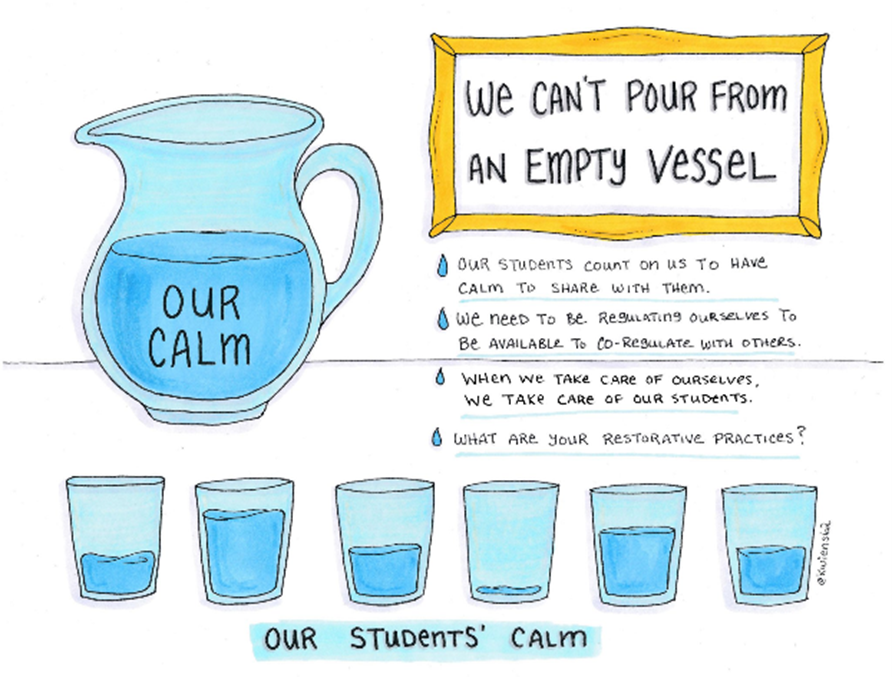 WE CAN'T POUR FROM
AN EMPTY VESSEL
OUR STUDENTS COUNT ON US TO HAVE
CALM TO SHARE WITH THEM.
WE NEED TO BE REGULATING OURSELVES TO
BE AVAILABLE TO CO-REGULATE WITH OTHERS.
WHEN WE TAKE CARE OF OURSELVES,
WE TAKE CARE OF OUR STUDENTS.
WHAT ARE YOUR RESTORATIVE PRACTICES?
OUR
CALM
@kwiens62
OUR STUDENTS' CALM